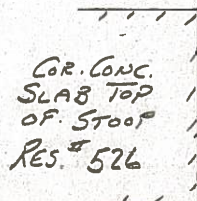 COR. CONC.
SLAB TOP
OF. STOOP
RES. # 526